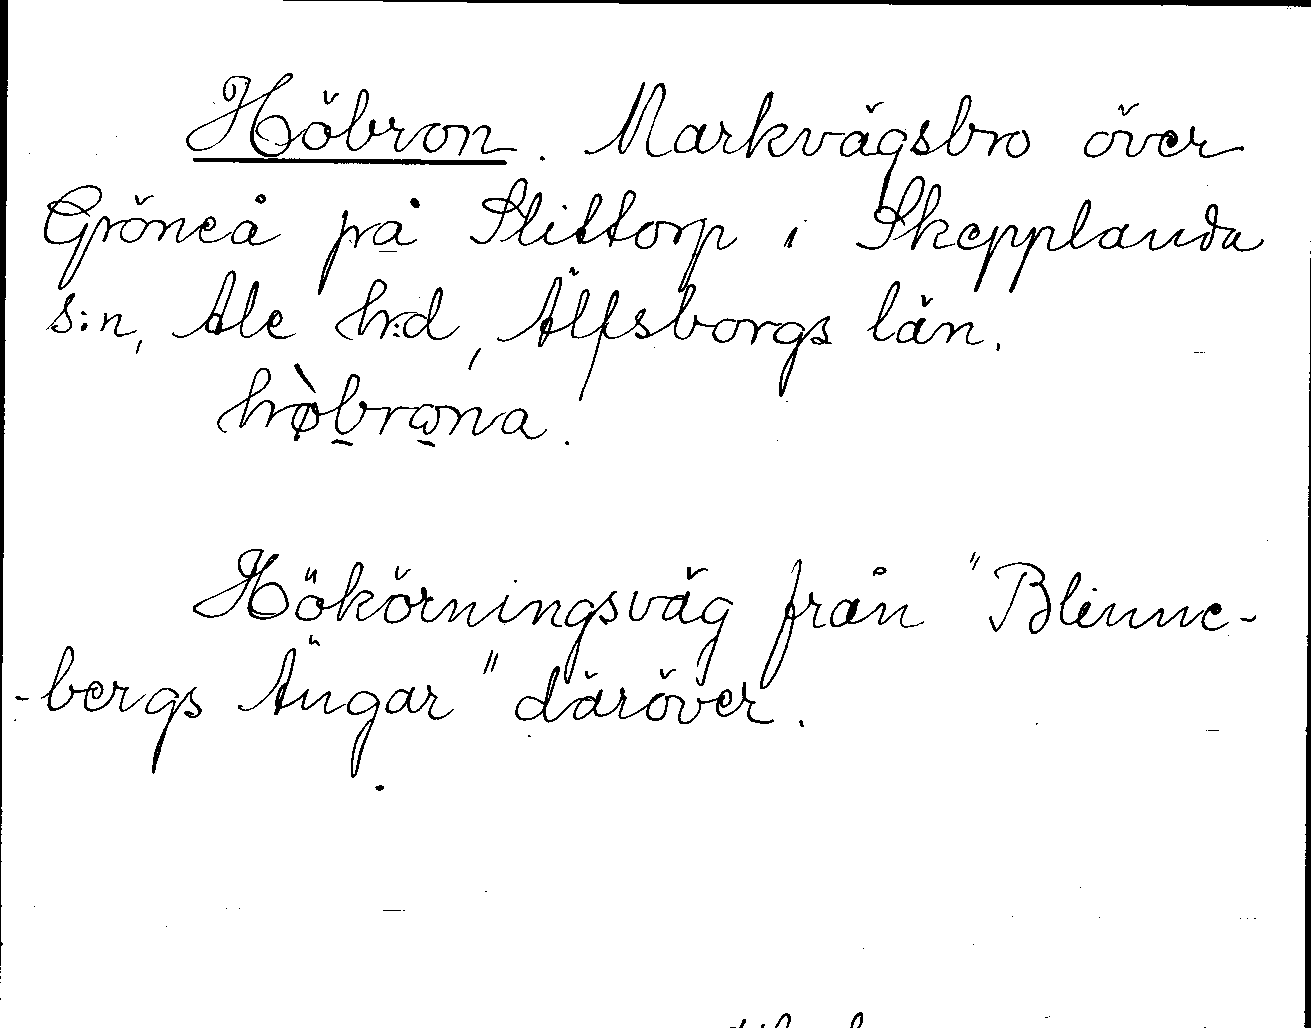 Höbron. Markvägsbro över
Gröneå på Slittorp i Skepplanda
s:n, Ale h:d, Älfsborgs län.
hø̀brωna.
Hökörningsväg från "Blinne-
-bergs Ängar" däröver.